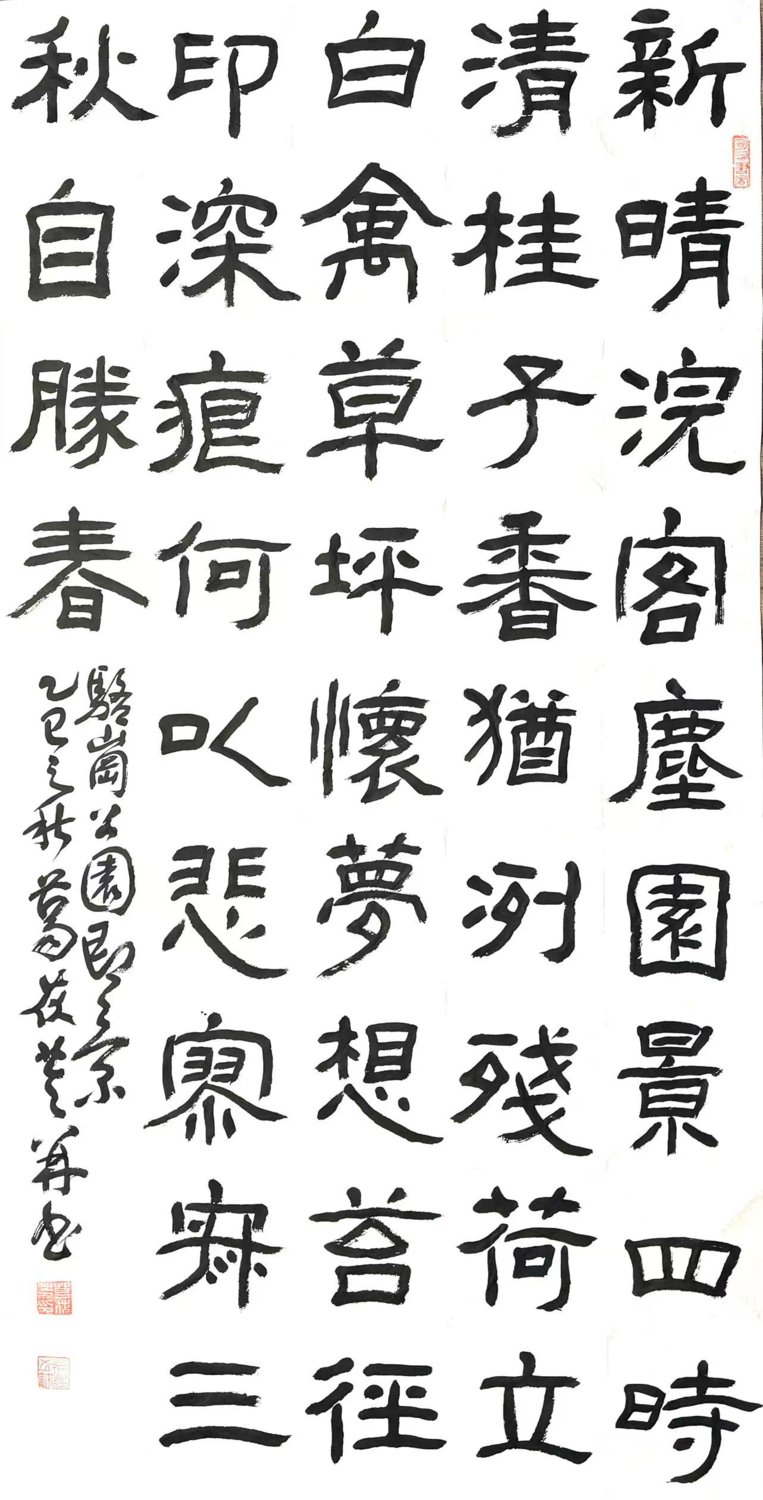 新晴浣客塵園景四時
清桂子香猶冽殘荷立
白禽草坪懷夢想苔徑
印深痕何以悲寥寂三
秋自勝春
駱崗公園即景
乙巳之秋葛并书